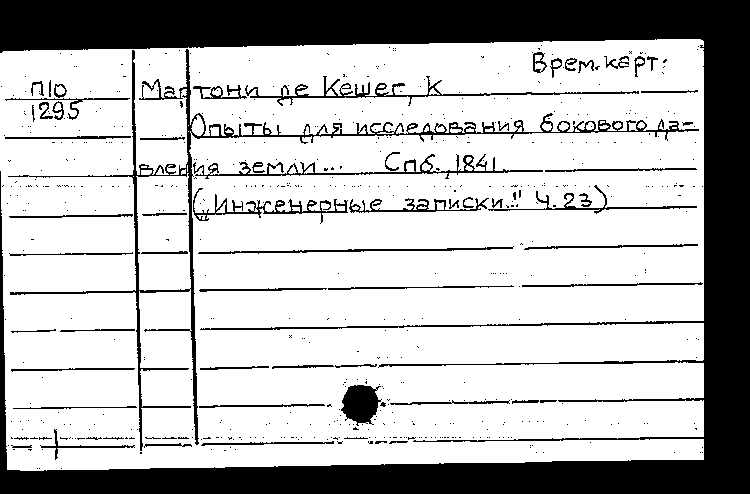 Врем.карт.
П10
1295
Мартони де Кешег, К
Опыты для исследования бокового да-
вления земли... Спб., 1841.
(„Инженерные записки." Ч. 23)